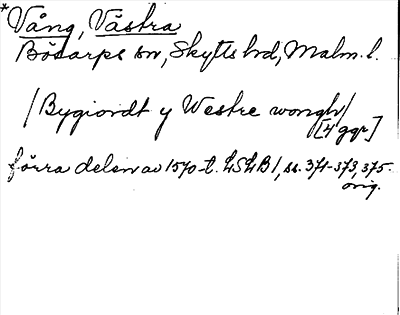 *Vång, Västra
Bösarps sn, Skytts hd, Malm. l.
/Bygiordt y Westre wongh/
[4 ggr]
förra delen av 1570-t. LSLB 1, ss. 371-373, 375.
orig.